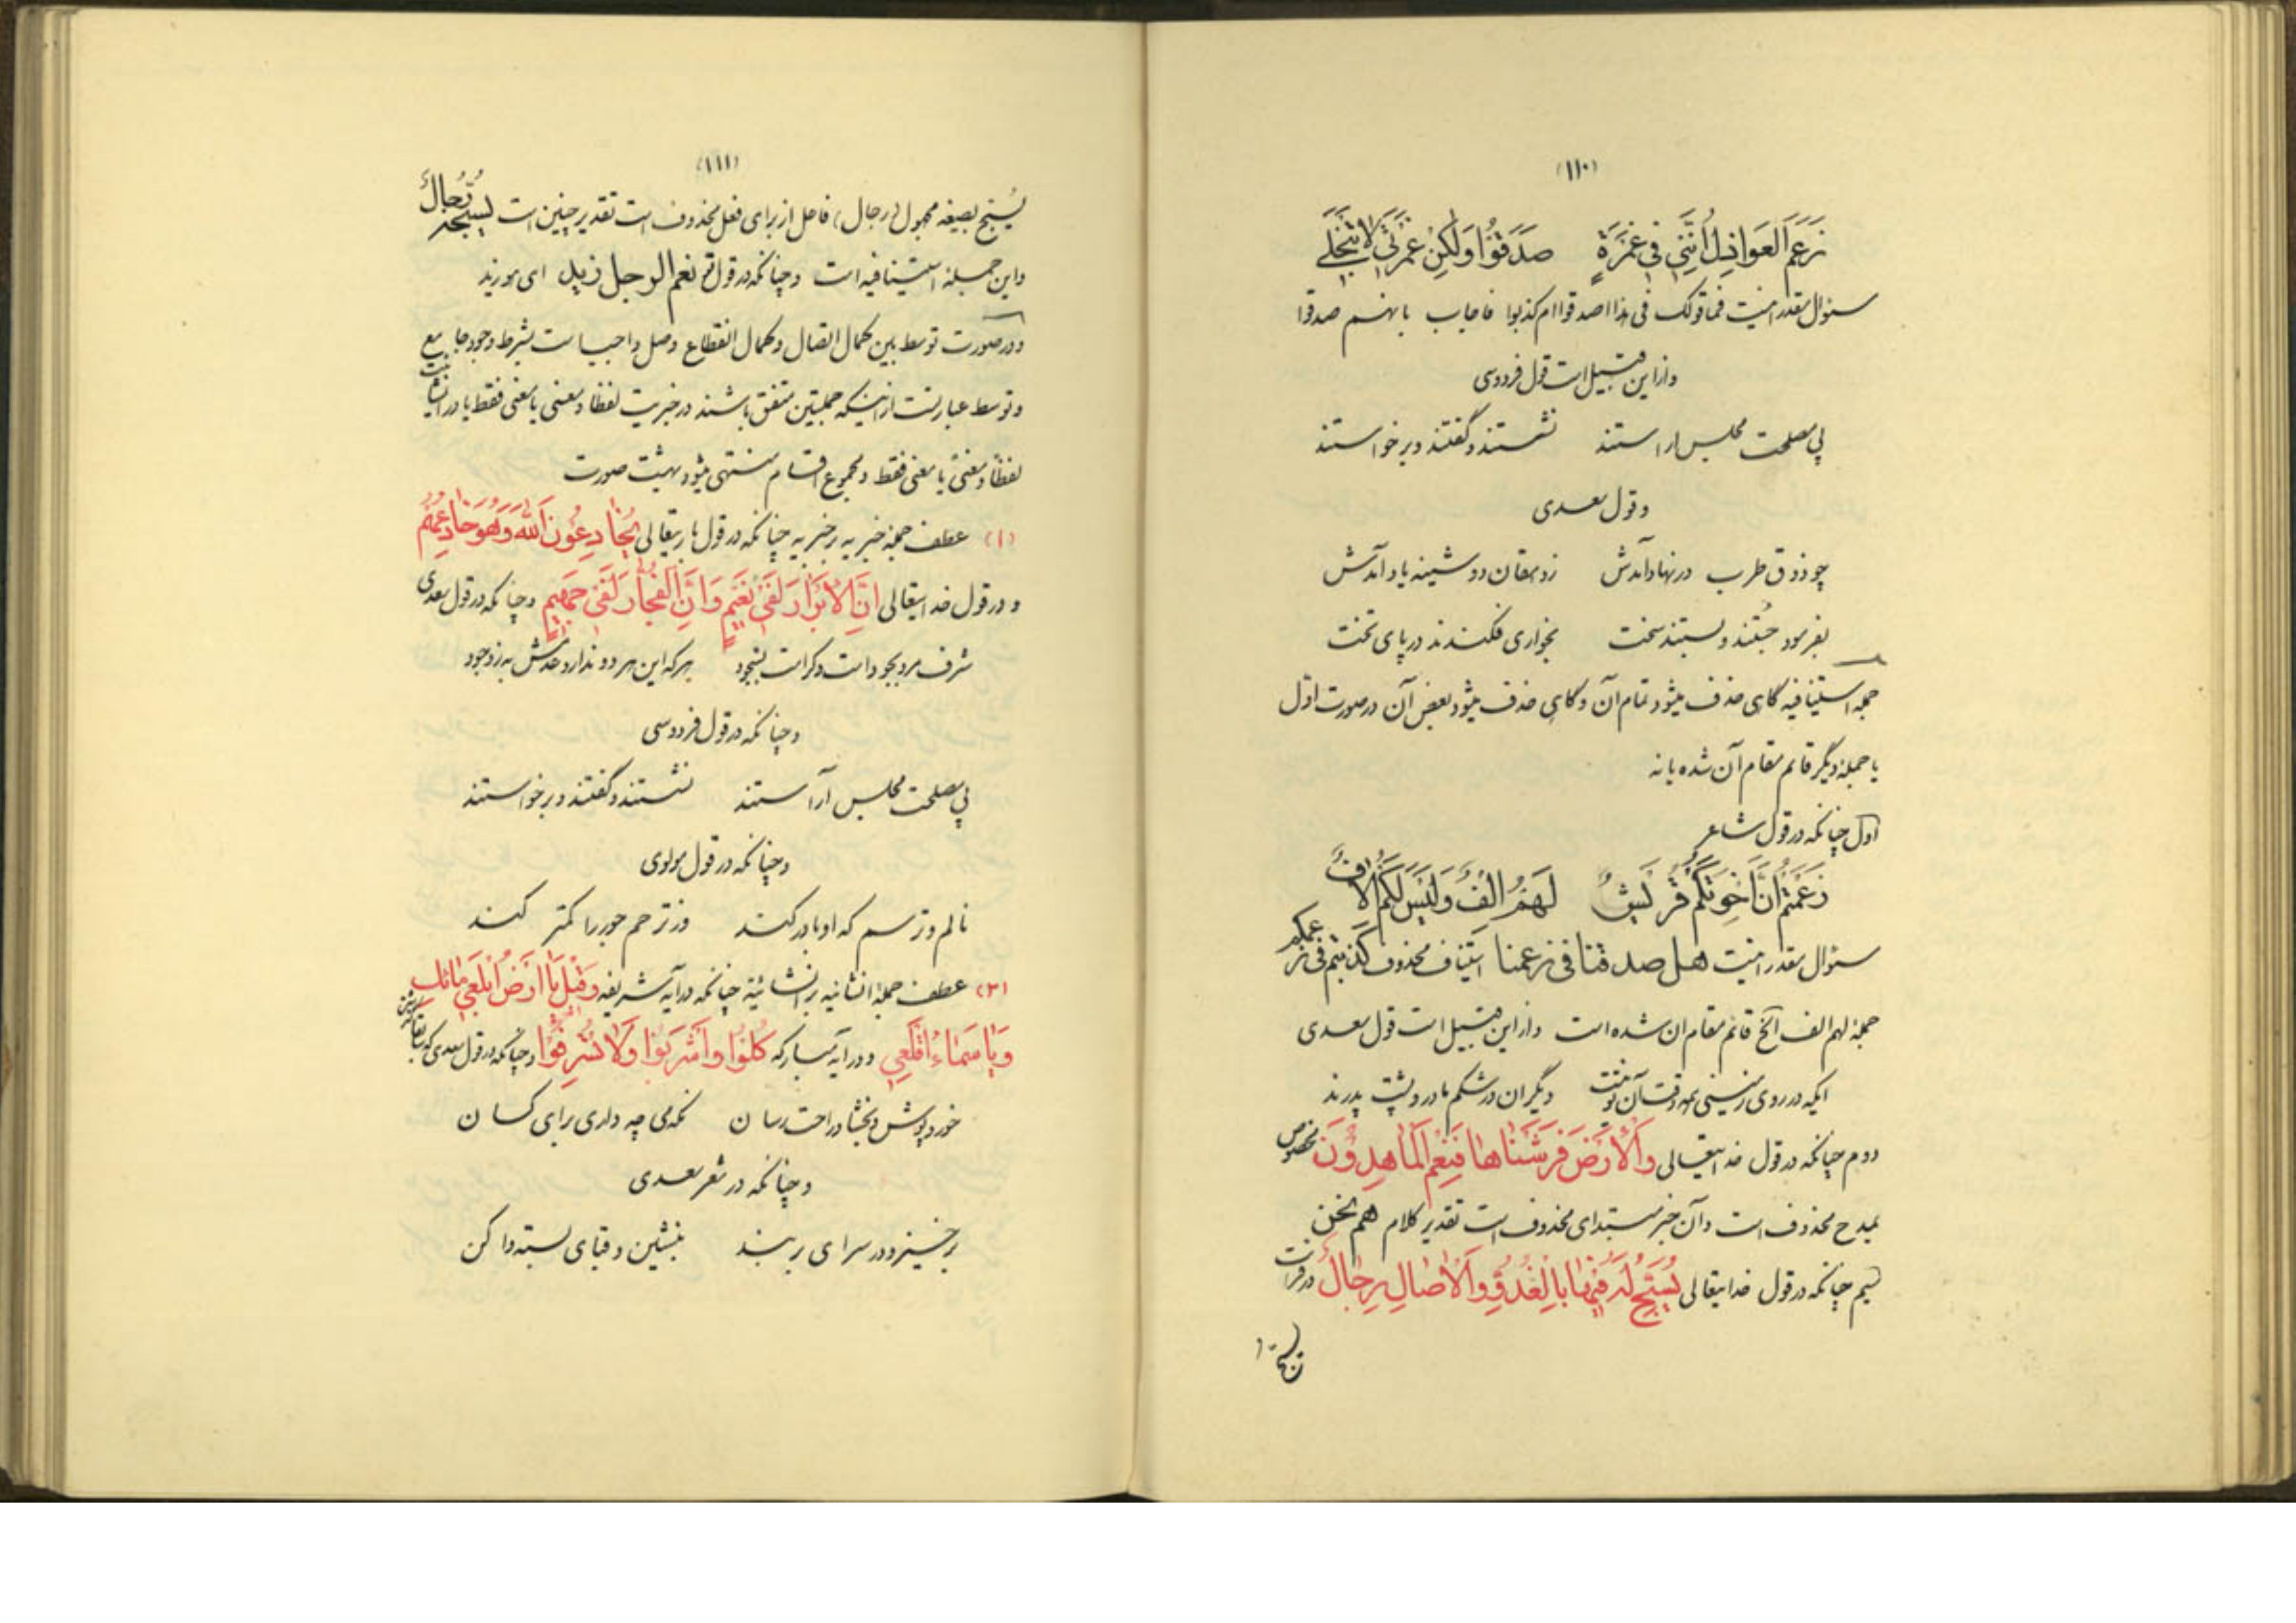 (۱۱۰)
زَعَمَ العَوَاذِلُ اَنَّنِی فِی غَمْرَةٍ صَدَقُوْا وَلٰکِنْ غَمْرَتِی لَا تَنْجَلِی
سئوال مقدر اینست فما قولک فی هذا اصدقوا ام کذبوا فاجاب بانهم صدقوا
و از این قبیل است قول فردوسی
پی مصلحت مجلس اراستند نشستند و گفتند و برخواستند
و قول سعدی
چو ذوق طرب در نهاد آمدش ز دهقان دوشینه یاد آمدش
بفرمود جُستند و بستند سخت بخواری فکندند در پای تخت
جمله استینافیه گاهی حذف میشود تمام آن و گاهی حذف میشود بعض آن در صورت اوّل
یا جملهٔ دیگر قائم مقام آن شده یا نه
اوّل چنانکه در قول شاعر
زَعَمْتُمْ اَنَّ اِخْوَتَکُمْ قُرَیْشٌ لَهُمْ اِلْفٌ وَلَیْسَ لَکُمْ اِلَافٌ
سئوال مقدر اینست هل صدقنا فی زعمنا استیناف محذوف کذبتم فی زعمکم
جملهٔ لهم الف الخ قائم مقام ان شده است و از این قبیل است قول سعدی
ایکه در روی زمینی همه وقت آن تو نیست دیگران در شکم مادر و پشت پدرند
دوم چنانکه در قول خدایتعالی وَالْاَرْضَ فَرَشْنَاهَا فَنِعْمَ الْمَاهِدُوْنَ مخصوص
بمدح محذوف است و آن خبر مبتدای محذوف است تقدیر کلام هم نحن
سیم چنانکه در قول خدایتعالی یُسَبَّحُ لَهُ فِیْهَا بِالْغُدُوِّ وَالْاٰصَالِ رِجَالٌ در قرائت
(۱۱۱)
یُسبَّح بصیغه مجهول (رجال) فاعل از برای فعل محذوف است تقدیر چنین است یُسَبِّحُهُ رِجَالٌ
و این جمله استینافیه است و چنانکه در قول نعم الرجل زید ای هو زید
و در صورت توسط بین کمال اتصال و کمال انقطاع وصل واجب است بشرط وجود جامع
و توسط عبارتست از اینکه جملتین متفق باشند در خبریت لفظا و معنی یا معنی فقط یا در انشائیت
لفظاً و معنیً یا معنی فقط و مجموع اقسام منتهی میشود بهشت صورت
(۱) عطف جملهٔ خبریه بر خبریه چنانکه در قول باریتعالی یُخَادِعُوْنَ اللهَ وَهُوَ خَادِعُهُمْ
و در قول خدایتعالی اِنَّ الْاَبْرَارَ لَفِیْ نَعِیْمٍ وَاِنَّ الْفُجَّارَ لَفِیْ جَحِیْمٍ و چنانکه در قول سعدی
شرف مرد بجود است و کرامت بسجود هر که این هر دو ندارد عدمش به ز وجود
و چنانکه در قول فردوسی
پی مصلحت مجلس آراستند نشستند و گفتند و برخواستند
و چنانکه در قول مولوی
نالم و ترسم که او باور کند وز ترحم جور را کمتر کند
(۲) عطف جملهٔ انشائیه بر انشائیة چنانکه در آیه شریفه وَقِیْلَ یَا اَرْضُ ابْلَعِیْ مَائَكِ
وَیَا سَمَاءُ اَقْلِعِی و در آیه مبارکه کُلُوْا وَاشْرَبُوْا وَلَا تُسْرِفُوْا و چنانکه در قول سعدی که
خور و پوش و بخشا و راحت رسان نگه می چه داری برای کسان
و چنانکه در شعر سعدی
برخیز و در سرای بربند بنشین و قبای بسته وا کن